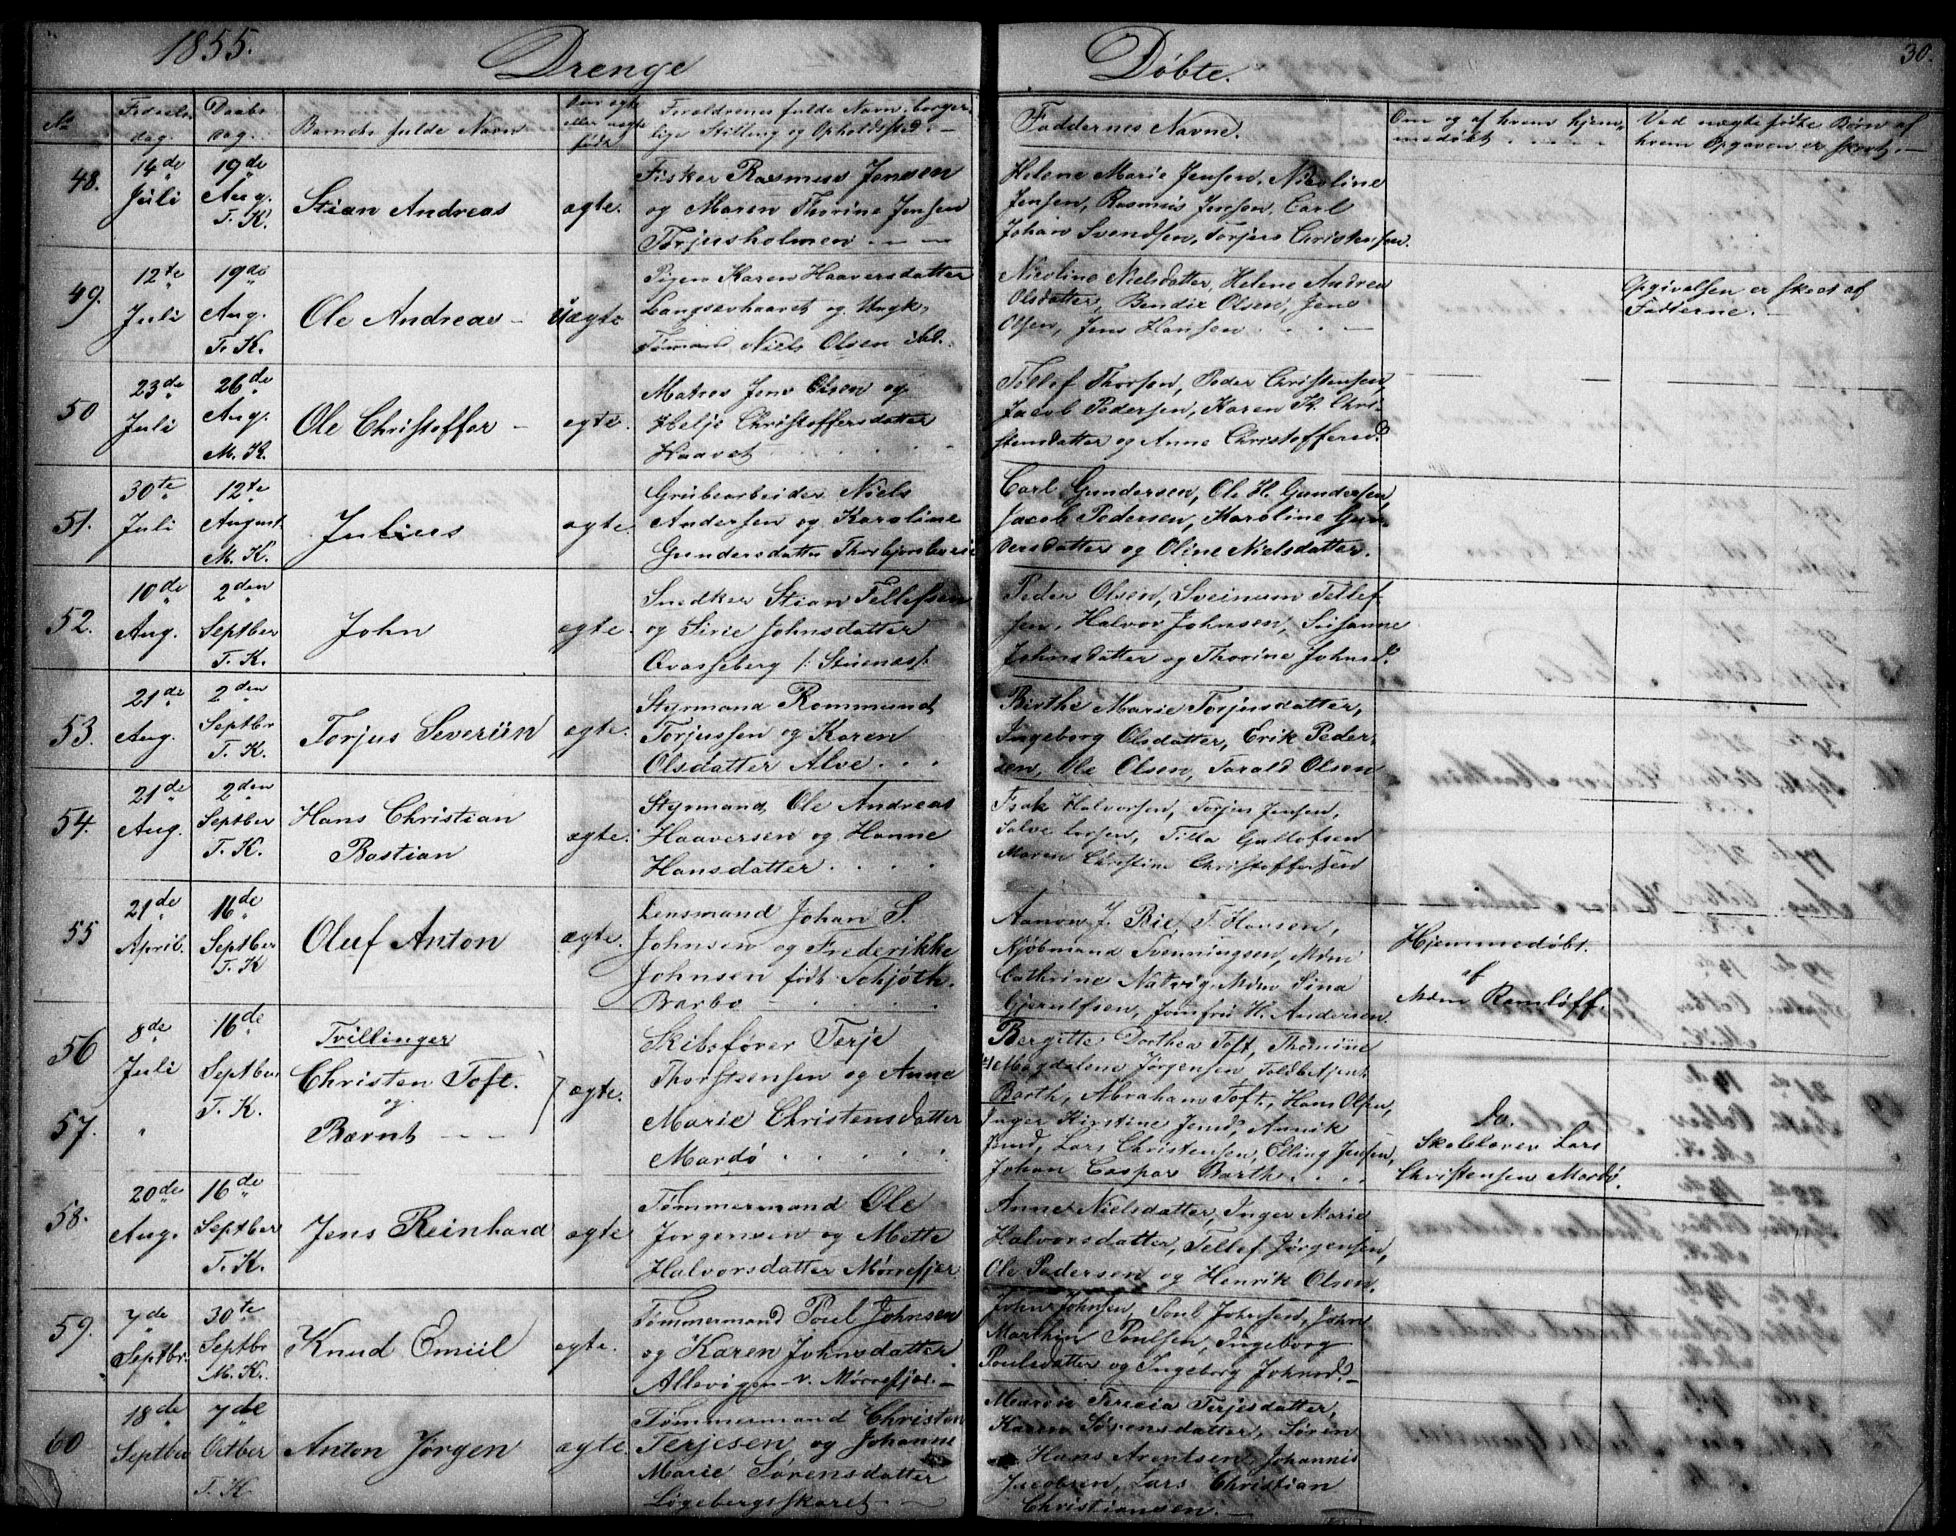 1855.
Drenge
Døbte.
30.
No
Fødsels
dag.
Daabs
dag.
Barnets fulde Navn
Om egte
eller uegte
født
Forældrenes fulde Navn, borger-
lige Stilling og Opholdssted. —
Faddernes Navne.
Om og af hvem hjem-
medøbt
Ved uegte fødte Børn af
hvem Opgaven er skeet. —
48.
14de
Juli
19de
Aug.
T. K.
Stian Andreas
ægte.
Fisker Rasmus Jensen
og Maren Thorine Jensen
Torjusholmen
Helene Marie Jensen, Nicoline
Jensen, Rasmus Jensen, Carl
Johan Svendsen, Torjus Christensen
49.
12te
Juli
19de
Aug.
T. K.
Ole Andreas —
Uægte
Pigen Karen Haaversdatter
Langsævhaavet og Ungk.
Tømmerm. Niels Olsen ibd.
Nicoline Nielsdatter, Helene Andrea
Olsdatter, Bendix Olsen, Jens
Olsen, Jens Hansen
Opgivelsen er skeet af
Fatterne. —
50
23de
Juli
26de
Aug.
M. K.
Ole Christoffer —
ægte.
Matros Jens Olsen og
Helje Christoffersdatter
Haavet
Tellef Thorsen, Peder Christensen,
Jacob Pedersen, Karen K. Chri-
stensdatter og Anne Christoffersd.
51.
30te
Juli
12te
August
M. K.
Julius
ægte.
Grubearbeider Niels
Andersen og Karoline
Gundersdatter Thorbjørnsbu
Carl Gundersen, Ole H. Gundersen,
Jacob Pedersen, Karoline Gun-
dersdatter og Oline Nielsdatter.
52.
10de
Aug.
2den
Septber
T. K.
John
ægte.
Snedker Stian Tellefsen
og Sirie Johnsdatter
Ovasseberg /: Stuenæs :/
Peder Olsen, Sveinum Tellef-
sen, Halvor Johnsen, Susanne
Johnsdatter og Thorine Johnsd.
53.
21de
Aug.
2den
Septbr
T. K.
Torjus Severiin
ægte.
Styrmand Rommund
Torjussen og Karen
Olsdatter Alve
Birthe Marie Torjusdatter,
Ingeborg Olsdatter, Erik Peder-
sen, Ole Olsen, Tarald Olsen
54.
21de
Aug.
2den
Septber
T. K.
Hans Christian
Bastian
ægte.
Styrmand Ole Andreas
Haaversen og Hanne
Hansdatter
Isak Halvorsen, Torjus Jensen,
Salve Larsen, Tilla Gullofsen
Maren Christine Christoffersen
55
21de
April.
16de
Septber
T. K.
Oluf Anton
ægte.
Lensmand Johan S.
Johnsen og Frederikke
Johnsen født Schjøth.
Barbo
Aanon J. Bie, T. Hansen,
Kjøbmand Svenningsen, Mdm
Cathrine Natvig, Mdm Sina
Gjerulfsen, Jomfru H. Andersen.
Hjemmedøbt.
af
Mdm Remløff.
56
57.
8de
Juli
"
16de
Septber
T. K.
Tvillinger
Christen Toft.
og
Bærnt
ægte.
Skibsfører Terje
Thorstensen og Anne
Marie Christensdatter
Mardø
Bergitte Dorthea Toft, Thomine
Magdalene Jørgensen Toldbetjent
Barth, Abraham Toft, Hans Olsen,
Inger Kirstine Jensd, Annik
Jensd, Lars Christensen, Elling Jensen,
Johan Caspar Barth.
Do.
Skolelærer Lars
Christensen Mardø.
58.
20de
Aug.
16de
Septber
T. K.
Jens Reinhard
ægte
Tømmermand Ole
Jørgensen og Mette
Halvorsdatter Mørrefjær
Anne Nielsdatter, Inger Marie
Halvorsdatter, Tellef Jørgensen,
Ole Pedersen og Henrik Olsen.
59.
7de
Septbr.
30te
Septbr
M. K.
Knud Emiil
ægte.
Tømmermand Poul Johnsen
og Karen Johnsdatter
Allevigen v. Mørrefjær. —
John Johnsen, Poul Johnsen, John
Marthin Poulsen, Ingeborg
Poulsdatter og Ingeborg Johnsd. —
60
18de
Septber
7de
Octber
T. K.
Anton Jørgen
ægte.
Tømmermand Christen
Terjesen og Johanne
Marie Sørensdatter
Løgebergsskaret. —
Maren Terecia Terjesdatter,
Karen Sørensdatter, Søren
Hans Arentsen, Johannis
Jacobsen, Lars Christian
Christiansen. —